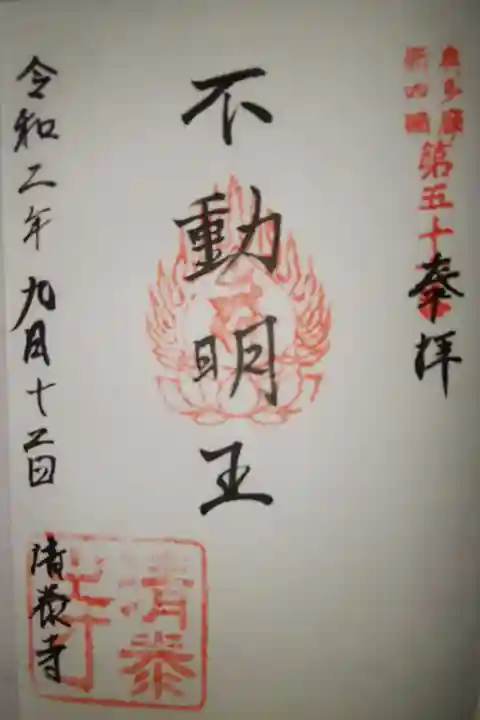 奉拝
第五十
新四國
不動明王
令和二年九月十二日
清泰寺
清泰